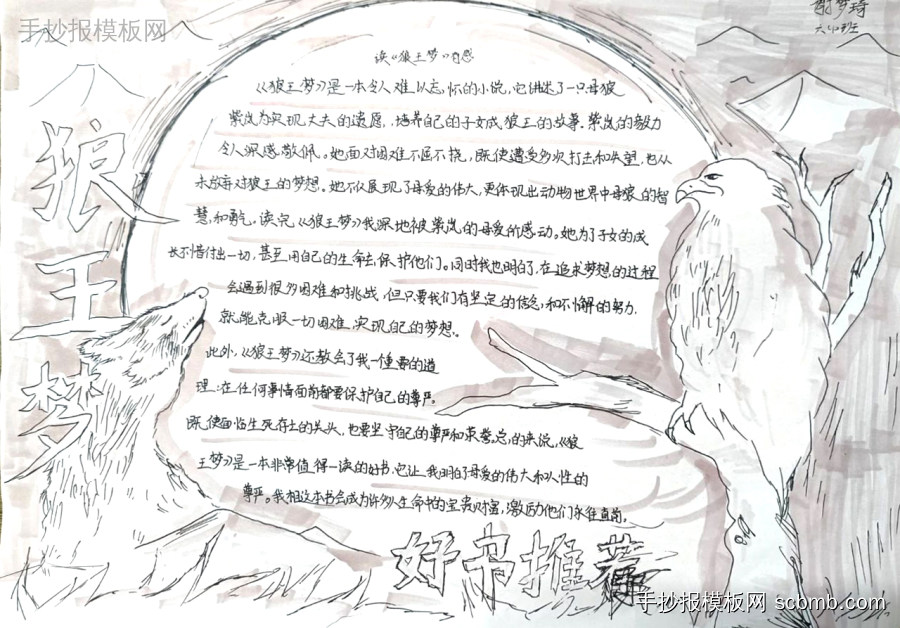 手抄报模板网
谢梦琦
狼王梦
读《狼王梦》有感
《狼王梦》是一本令人难以忘怀的小说,它讲述了一只母狼
紫岚为实现丈夫的遗愿,培养自己的子女成狼王的故事.紫岚的毅力
令人深感敬佩。她面对困难不屈不挠,既使遭受多次打击和失望,也从
未放弃对狼王的梦想。她不仅展现了母爱的伟大,更体现出动物世界中母狼的智
慧,和勇气。读完《狼王梦》我深地被紫岚的母爱所感动。她为了子女的成
长不惜付出一切,甚至用自己的生命去保护他们。同时我也明白了,在追求梦想的过程
会遇到很多困难和挑战,但只要我们有坚定的信念,和不懈的努力,
就能克服一切困难,实现自己的梦想。
此外,《狼王梦》还教会了我一个重要的道
理:在任何事情面前都要保护自己的尊严。
既使面临生死存亡的关头,也要坚守自己的尊严和荣誉总的来说,《狼
王梦》是一本非常值得一读的好书,它让我明白了母爱的伟大和人性的
尊严。我相这本书会成为许多人生命中的宝贵财富,激励他们永往直前。
好书推荐
手抄报模板网 scbmb.com